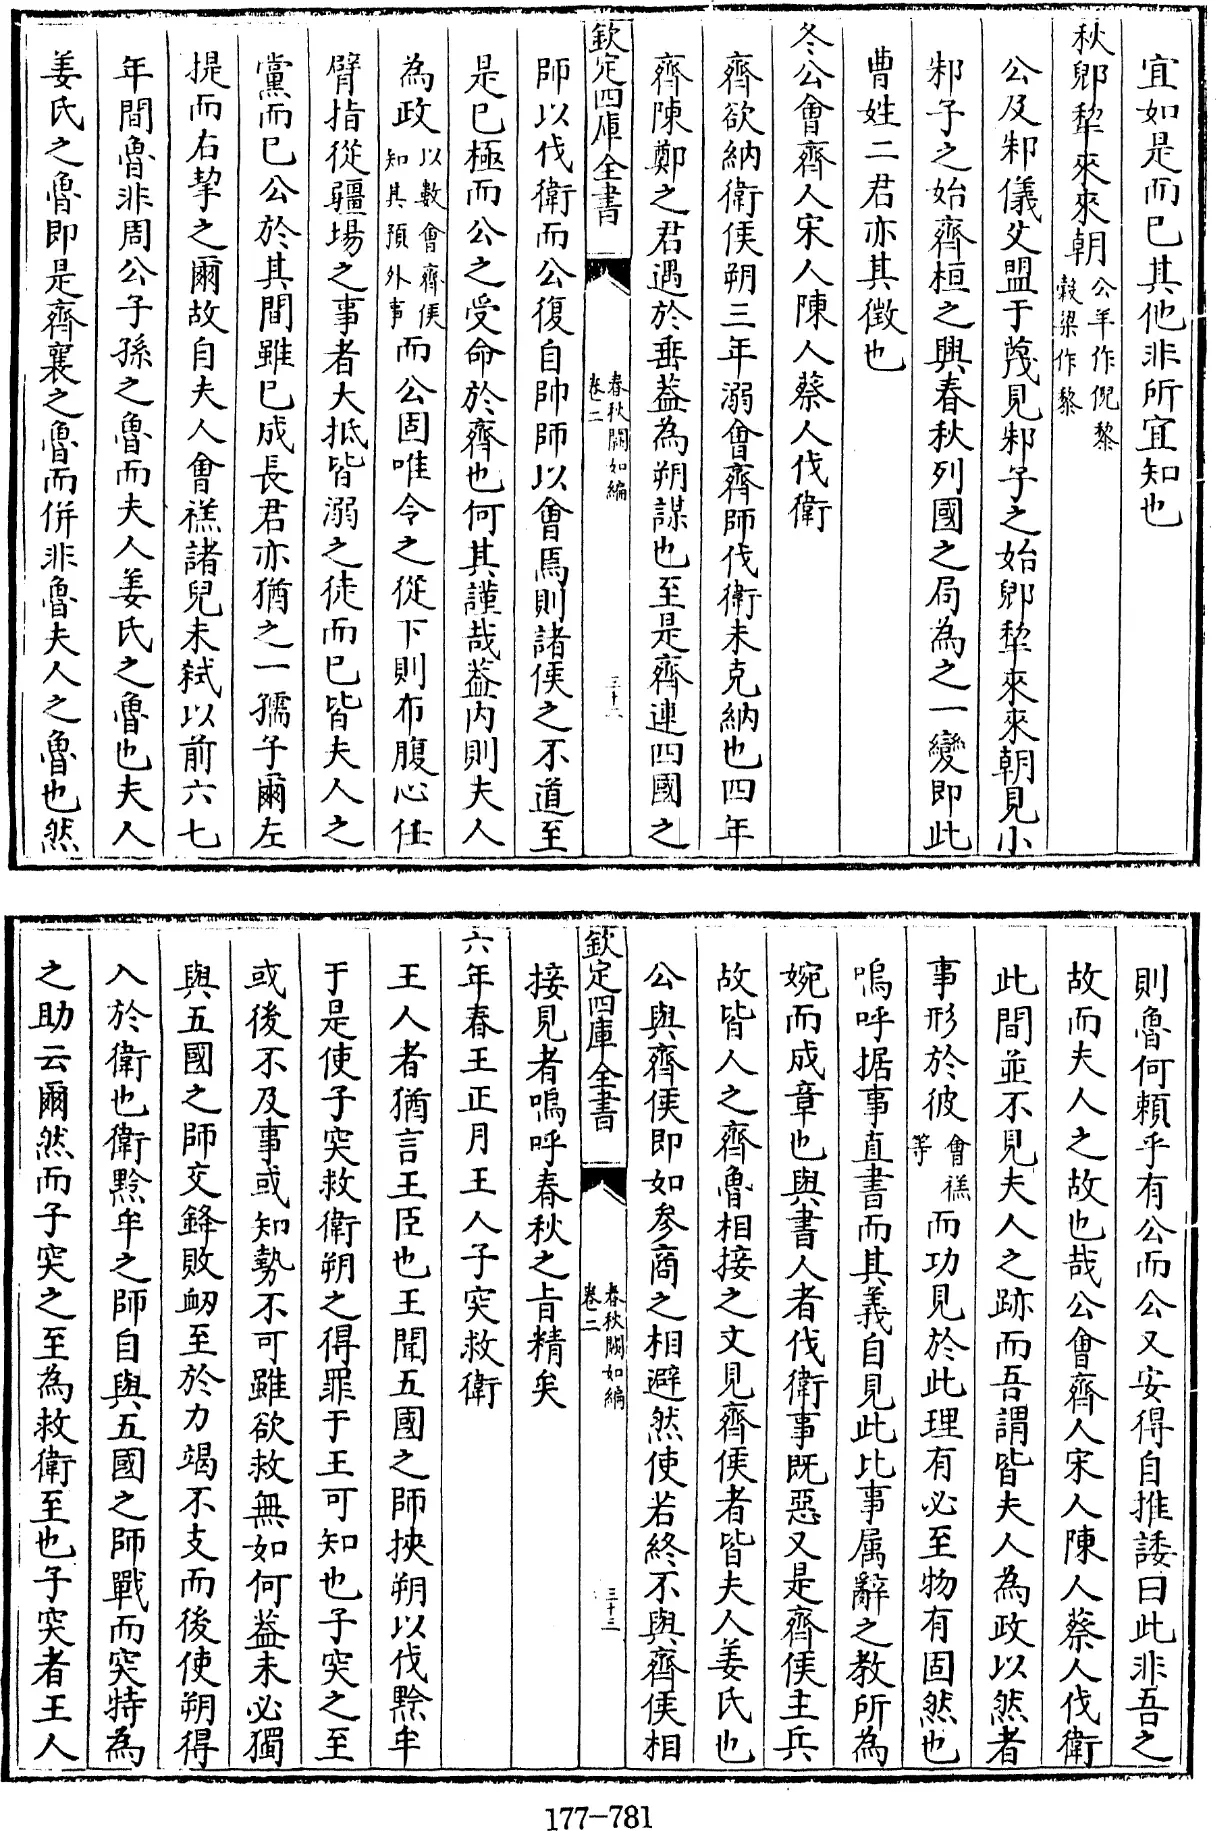 宜如是而已其他非所宜知也
秋郳犂來來朝公羊作倪黎穀梁作黎
公及邾儀父盟于蔑見邾子之始郳犂來來朝見小
邾子之始齊桓之興春秋列國之局為之一變即此
曹姓二君亦其徵也
冬公會齊人宋人陳人蔡人伐衛
齊欲納衛侯朔三年溺會齊師伐衛未克納也四年
齊陳鄭之君遇於垂葢為朔謀也至是齊連四國之
欽定四庫全書
春秋闕如編
卷二
三十二
師以伐衛而公復自帥師以會焉則諸侯之不道至
是已極而公之受命於齊也何其謹哉葢内則夫人
為政以數會齊侯知其預外事而公固唯令之從下則布腹心任
臂指從疆場之事者大抵皆溺之徒而已皆夫人之
黨而已公於其間雖已成長君亦猶之一孺子爾左
提而右挈之爾故自夫人會禚諸兒未弒以前六七
年間魯非周公子孫之魯而夫人姜氏之魯也夫人
姜氏之魯即是齊襄之魯而併非魯夫人之魯也然
則魯何賴乎有公而公又安得自推諉曰此非吾之
故而夫人之故也哉公會齊人宋人陳人蔡人伐衛
此間並不見夫人之跡而吾謂皆夫人為政以然者
事形於彼會禚等而功見於此理有必至物有固然也
嗚呼据事直書而其義自見此比事属辭之教所為
婉而成章也與書人者伐衛事既惡又是齊侯主兵
故皆人之齊魯相接之文見齊侯者皆夫人姜氏也
公與齊侯即如参商之相避然使若終不與齊侯相
欽定四庫全書
春秋闕如編
卷二
三十三
接見者嗚呼春秋之旨精矣
六年春王正月王人子突救衛
王人者猶言王臣也王聞五國之師挾朔以伐黔牟
于是使子突救衛朔之得罪于王可知也子突之至
或後不及事或知勢不可雖欲救無如何葢未必獨
與五國之師交鋒敗衂至於力竭不支而後使朔得
入於衛也衛黔牟之師自與五國之師戰而突特為
之助云爾然而子突之至為救衛至也子突者王人
177-781